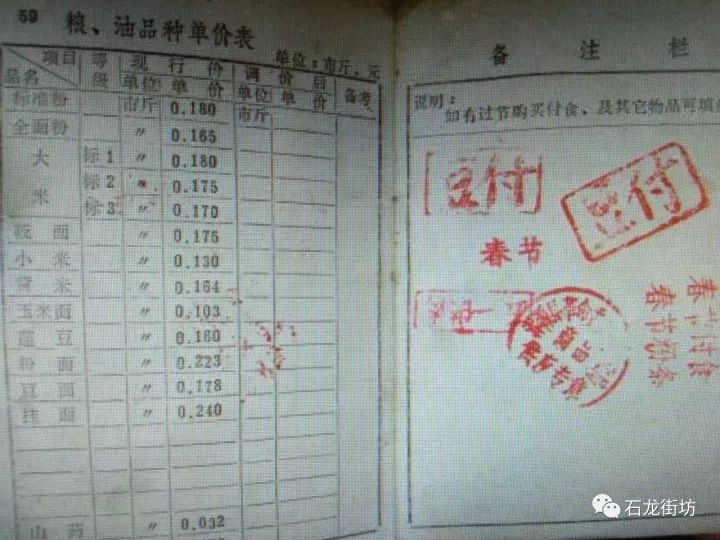 59 粮、油品种单价表
单位：市斤、元
项目 品名 等级 现行价 调价后 备考
单位 单价 单位 单价
标准粉 市斤 0.180 市斤
全面粉 〃 0.165
大米 标1 〃 0.180
标2 〃 0.175
标3 〃 0.170
莜面 〃 0.175
小米 〃 0.130
黄米 〃 0.164
玉米面 〃 0.103
豆 〃 0.160
粉面 〃 0.223
豆面 〃 0.178
挂面 〃 0.240
山药 〃 0.032
备注栏
说明：
如有过节购买付食、及其它物品可填
豆付
豆付
春节
春节付食
春节
石龙街坊